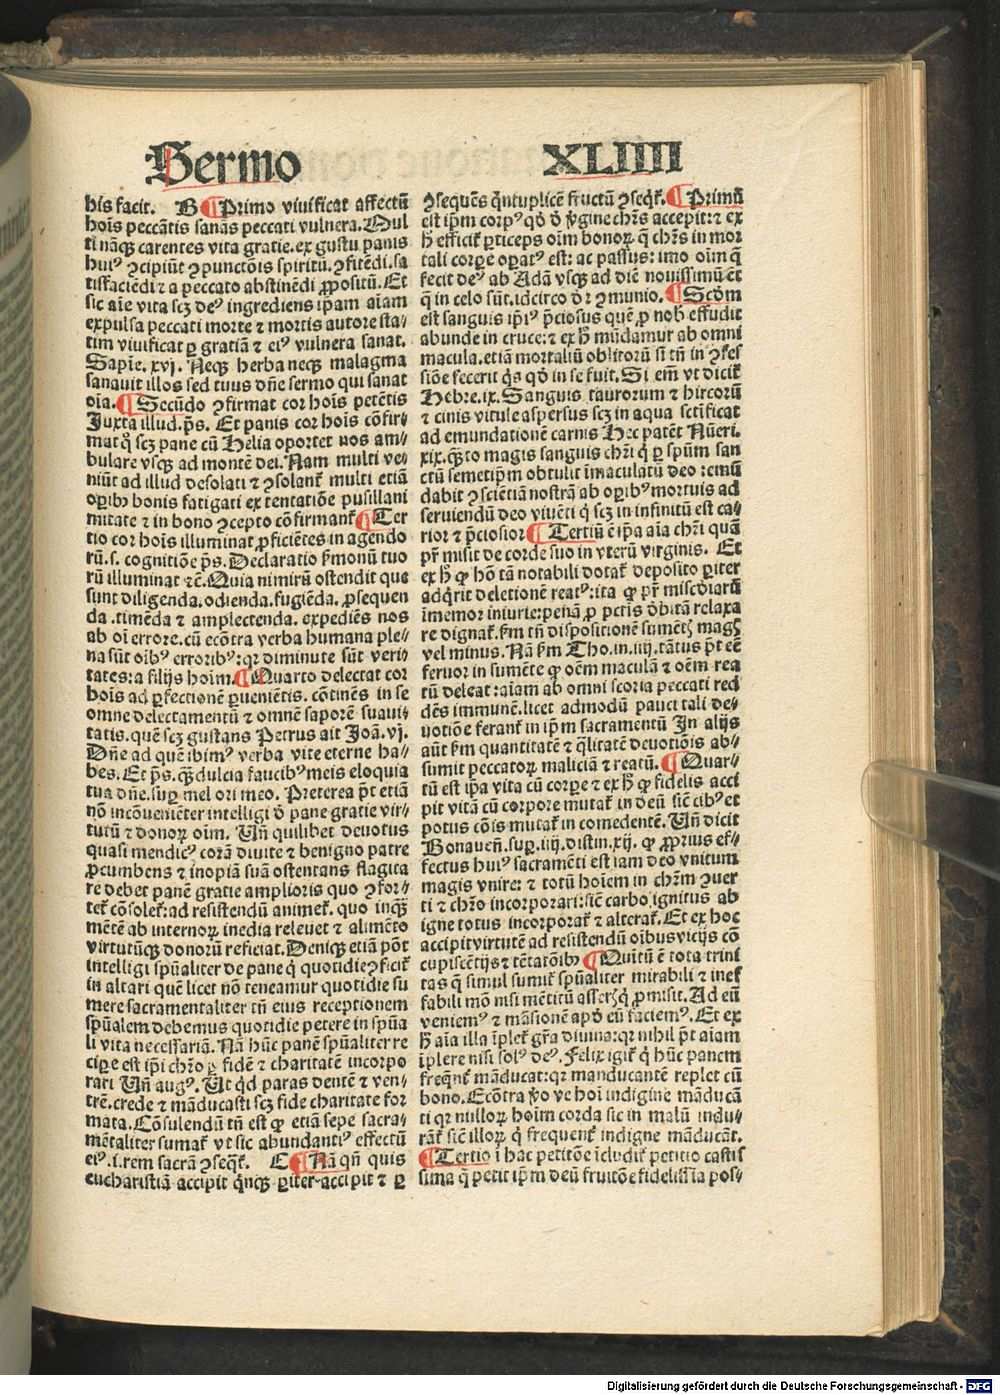 Sermo XLIIII
his facit. B ¶ Primo viuificat affectū
hoīs peccātis sanās peccati vulnera. Mul
ti nāqꝫ carentes vita gratie. ex gustu panis
huiꝰ ꝯcipiūt ꝯpunctōis spiritū. ꝯfitēdi. sa
tisfaciēdi ⁊ a peccato abstinēdi ꝓpositū. Et
sic aīe vita scꝫ deꝰ ingrediens ip̄am aīam
expulsa peccati morte ⁊ mortis autore sta⸗
tim viuificat ꝑ gratiā ⁊ eiꝰ vulnera sanat.
Sapīe. xvj. Neqꝫ herba neqꝫ malagma
sanauit illos sed tuus dn̄e sermo qui sanat
oīa. ¶ Secūdo ꝯfirmat cor hoīs petētis
Juxta illud. ps̄. Et panis cor hoīs cōfir⸗
mat qͦ scꝫ pane cū Helia oportet nos am⸗
bulare vsqꝫ ad montē dei. Nam multi ve⸗
niūt ad illud desolati ⁊ ꝯsolant᷑ multi etiā
oꝑibꝰ bonis fatigati ex tentatiōe pusillani
mitate ⁊ in bono ꝯcepto cōfirmant᷑ ¶ Ter
tio cor hoīs illuminat ꝓficiētes in agendo
rū. s. cognitiōe ps̄. Declaratio ẜmonū tuo
rū illuminat ⁊c̄. Quia nimirū ostendit que
sunt diligenda. odienda. fugiēda. ꝓsequen
da. timēda ⁊ amplectenda. expediēs nos
ab oī errore. cū ecōtra verba humana ple⸗
na sūt oībꝰ erroribꝰ: qꝛ diminute sūt veri⸗
tates: a filijs hoīm. ¶ Quarto delectat cor
hoīs ad ꝑfectionē ꝑueniētis. cōtinēs in se
omne delectamentū ⁊ omnē saporē suaui⸗
tatis. quē scꝫ gustans Petrus ait Joā. vj.
Dn̄e ad quē ibimꝰ verba vite eterne ha⸗
bes. Et ps̄. qͣꝫ dulcia faucibꝰ meis eloquia
tua dn̄e. suꝑ mel ori meo. Preterea pōt etiā
nō incōueniēter intelligi ð pane gratie vir⸗
tutū ⁊ donoꝝ oīm. Vn̄ quilibet deuotus
quasi mendicꝰ corā diuite ⁊ benigno patre
ꝓcumbens ⁊ inopiā suā ostentans flagita
re debet panē gratie amplioris quo ꝯfor⸗
tet᷑ cōsolet᷑: ad resistendū animet᷑. quo inqͣꝫ
mētē ab internoꝝ inedia releuet ⁊ alimēto
virtutūqꝫ donorū reficiat. Deniqꝫ etiā pōt
intelligi spūaliter de pane q̇ quotidie ꝯficit᷑
in altari quē licet nō teneamur quotidie su
mere sacramentaliter tn̄ eius receptionem
spūalem debemus quotidie petere in spūa
li vita necessariā. Nā hūc panē spūaliter re
ciꝑe est ip̄i chr̄o ꝑ fidē ⁊ charitatē incorpo
rari Vn̄ augꝰ. Vt qͥd paras dentē ⁊ ven⸗
trē. crede ⁊ māducasti scꝫ fide charitate for
mata. Cōsulendū tn̄ est ꝙ etiā sepe sacra⸗
mētaliter sumat᷑ vt sic abundantiꝰ effectū
eiꝰ. i. rem sacrā ꝯseqͣt᷑. C ¶ Nā qn̄ quis
eucharistiā accipit qͥnqꝫ ꝑiter accipit ⁊ ꝑ
ꝯsequēs qͥntuplicē fructū ꝯseqͥt᷑. ¶ Primū
est ip̄m corpꝰ qð ð ꝟgine chr̄s accepit: ⁊ ex
hͦ efficit᷑ ꝑticeps oīm bonoꝝ q̄ chr̄s in mor
tali corꝑe oꝑatꝰ est: ac passus: imo oīm q̄
fecit deꝰ ab Adā vsqꝫ ad diē nouissimū et
q̄ in celo sūt. idcirco dr̄ ꝯmunio. ¶ Scðm
est sanguis ip̄iꝰ p̄ciosus quē ꝓ nobꝭ effudit
abunde in cruce: ⁊ ex hͦ mūdamur ab omni
macula. etiā mortaliū oblitorū si tn̄ in ꝯfes
siōe fecerit qͥs qð in se fuit. Si em̄ vt dicit᷑
Hebre. ix. Sanguis taurorum ⁊ hircorū
⁊ cinis vitule aspersus scꝫ in aqua sctīficat
ad emundationē carnis Hec patēt Nūeri.
xix. qͣꝫto magis sanguis chr̄i q̇ ꝑ spūm san
ctū semetip̄m obtulit īmaculatū deo: emū
dabit ꝯsciētiā nostrā ab oꝑibꝰ mortuis ad
seruiendū deo viuēti q̇ scꝫ in infinitū est ca⸗
rior ⁊ p̄ciosior ¶ Tertiū ē ip̄a aīa chr̄i quā
pr̄ misit de corde suo in vterū virginis. Et
ex hͦ ꝙ hō tā notabili dotat᷑ deposito ꝑiter
adqͥrit deletionē reatꝰ: ita ꝙ pr̄ mīscðiarū
īmemor iniurie: penā ꝓ pctīs ðbitā relaxa
re dignat᷑. ẜm tn̄ dispositionē sumētꝭ magꝭ
vel minus. Nā ẜm Tho. in. iiij. tātus pōt eē
feruor in sumēte ꝙ oēm maculā ⁊ oēm rea
tū deleat: aīam ab omni scoria peccati red
dēs immunē. licet admodū pauci tali de⸗
uotiōe ferant᷑ in ip̄m sacramentū Jn alijs
aūt ẜm quantitatē ⁊ qͣlitatē deuotiōis ab⸗
sumit peccatoꝝ maliciā ⁊ reatū. ¶ Quar⸗
tū est ip̄a vita cū corꝑe ⁊ ex hͦ ꝙ fidelis acci
pit vitā cū corpore mutat᷑ in deū sic̄ cibꝰ et
potus cōis mutat᷑ in comedentē. Vn̄ dicit
Bonauen̄. suꝑ. iiij. distin. xij. ꝙ ꝓprius ef⸗
fectus huiꝰ sacramēti est iam deo vnitum
magis vnire: ⁊ totū hoīem in chr̄m ꝯuer
ti ⁊ chr̄o incorporari: sic̄ carbo ignitus ab
igne totus incorporat᷑ ⁊ alterat᷑. Et ex hoc
accipit virtutē ad resistendū oībus vicijs cō
cupiscētijs ⁊ tētatōibꝰ ¶ Quītū ē tota trini
tas q̄ simul sumit᷑ spūaliter mirabili ⁊ inef
fabili mō nisi mētitū asserꝫ qͥ ꝓmisit. Ad eū
veniemꝰ ⁊ māsionē apð eū faciemꝰ. Et ex
hͦ aīa illa īplet᷑ gr̄a diuina: qꝛ nihil pōt aīam
īplere nisi solꝰ deꝰ. Felix igit᷑ q̇ hūc panem
freqn̄t᷑ māducat: qꝛ manducantē replet cū
bono. Ecōtra ꝟo ve hoī indigne māducā
ti qꝛ nulloꝝ hoīm corda sic in malū indu⸗
rāt᷑ sic̄ illoꝝ q̇ frequent᷑ indigne māducāt.
¶ Tertio ī hac petitōe īcludit᷑ petitio castis
sima q̄ petit ip̄m deū fruitōe fidelissīa pos⸗
Digitalisierung gefördert durch die Deutsche Forschungsgemeinschaft - DFG